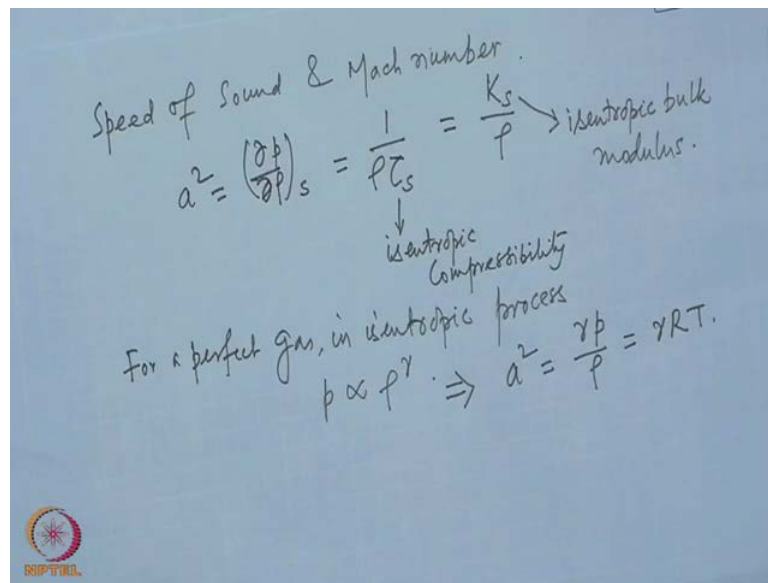 Speed of Sound & Mach number.
a² = (∂p/∂ρ)s = 1/ρτs = Ks/ρ → isentropic bulk modulus.
↓
isentropic
Compressibility
For a perfect gas, in isentropic process
p ∝ ρ^γ. ⇒ a² = γp/ρ = γRT.
NPTEL